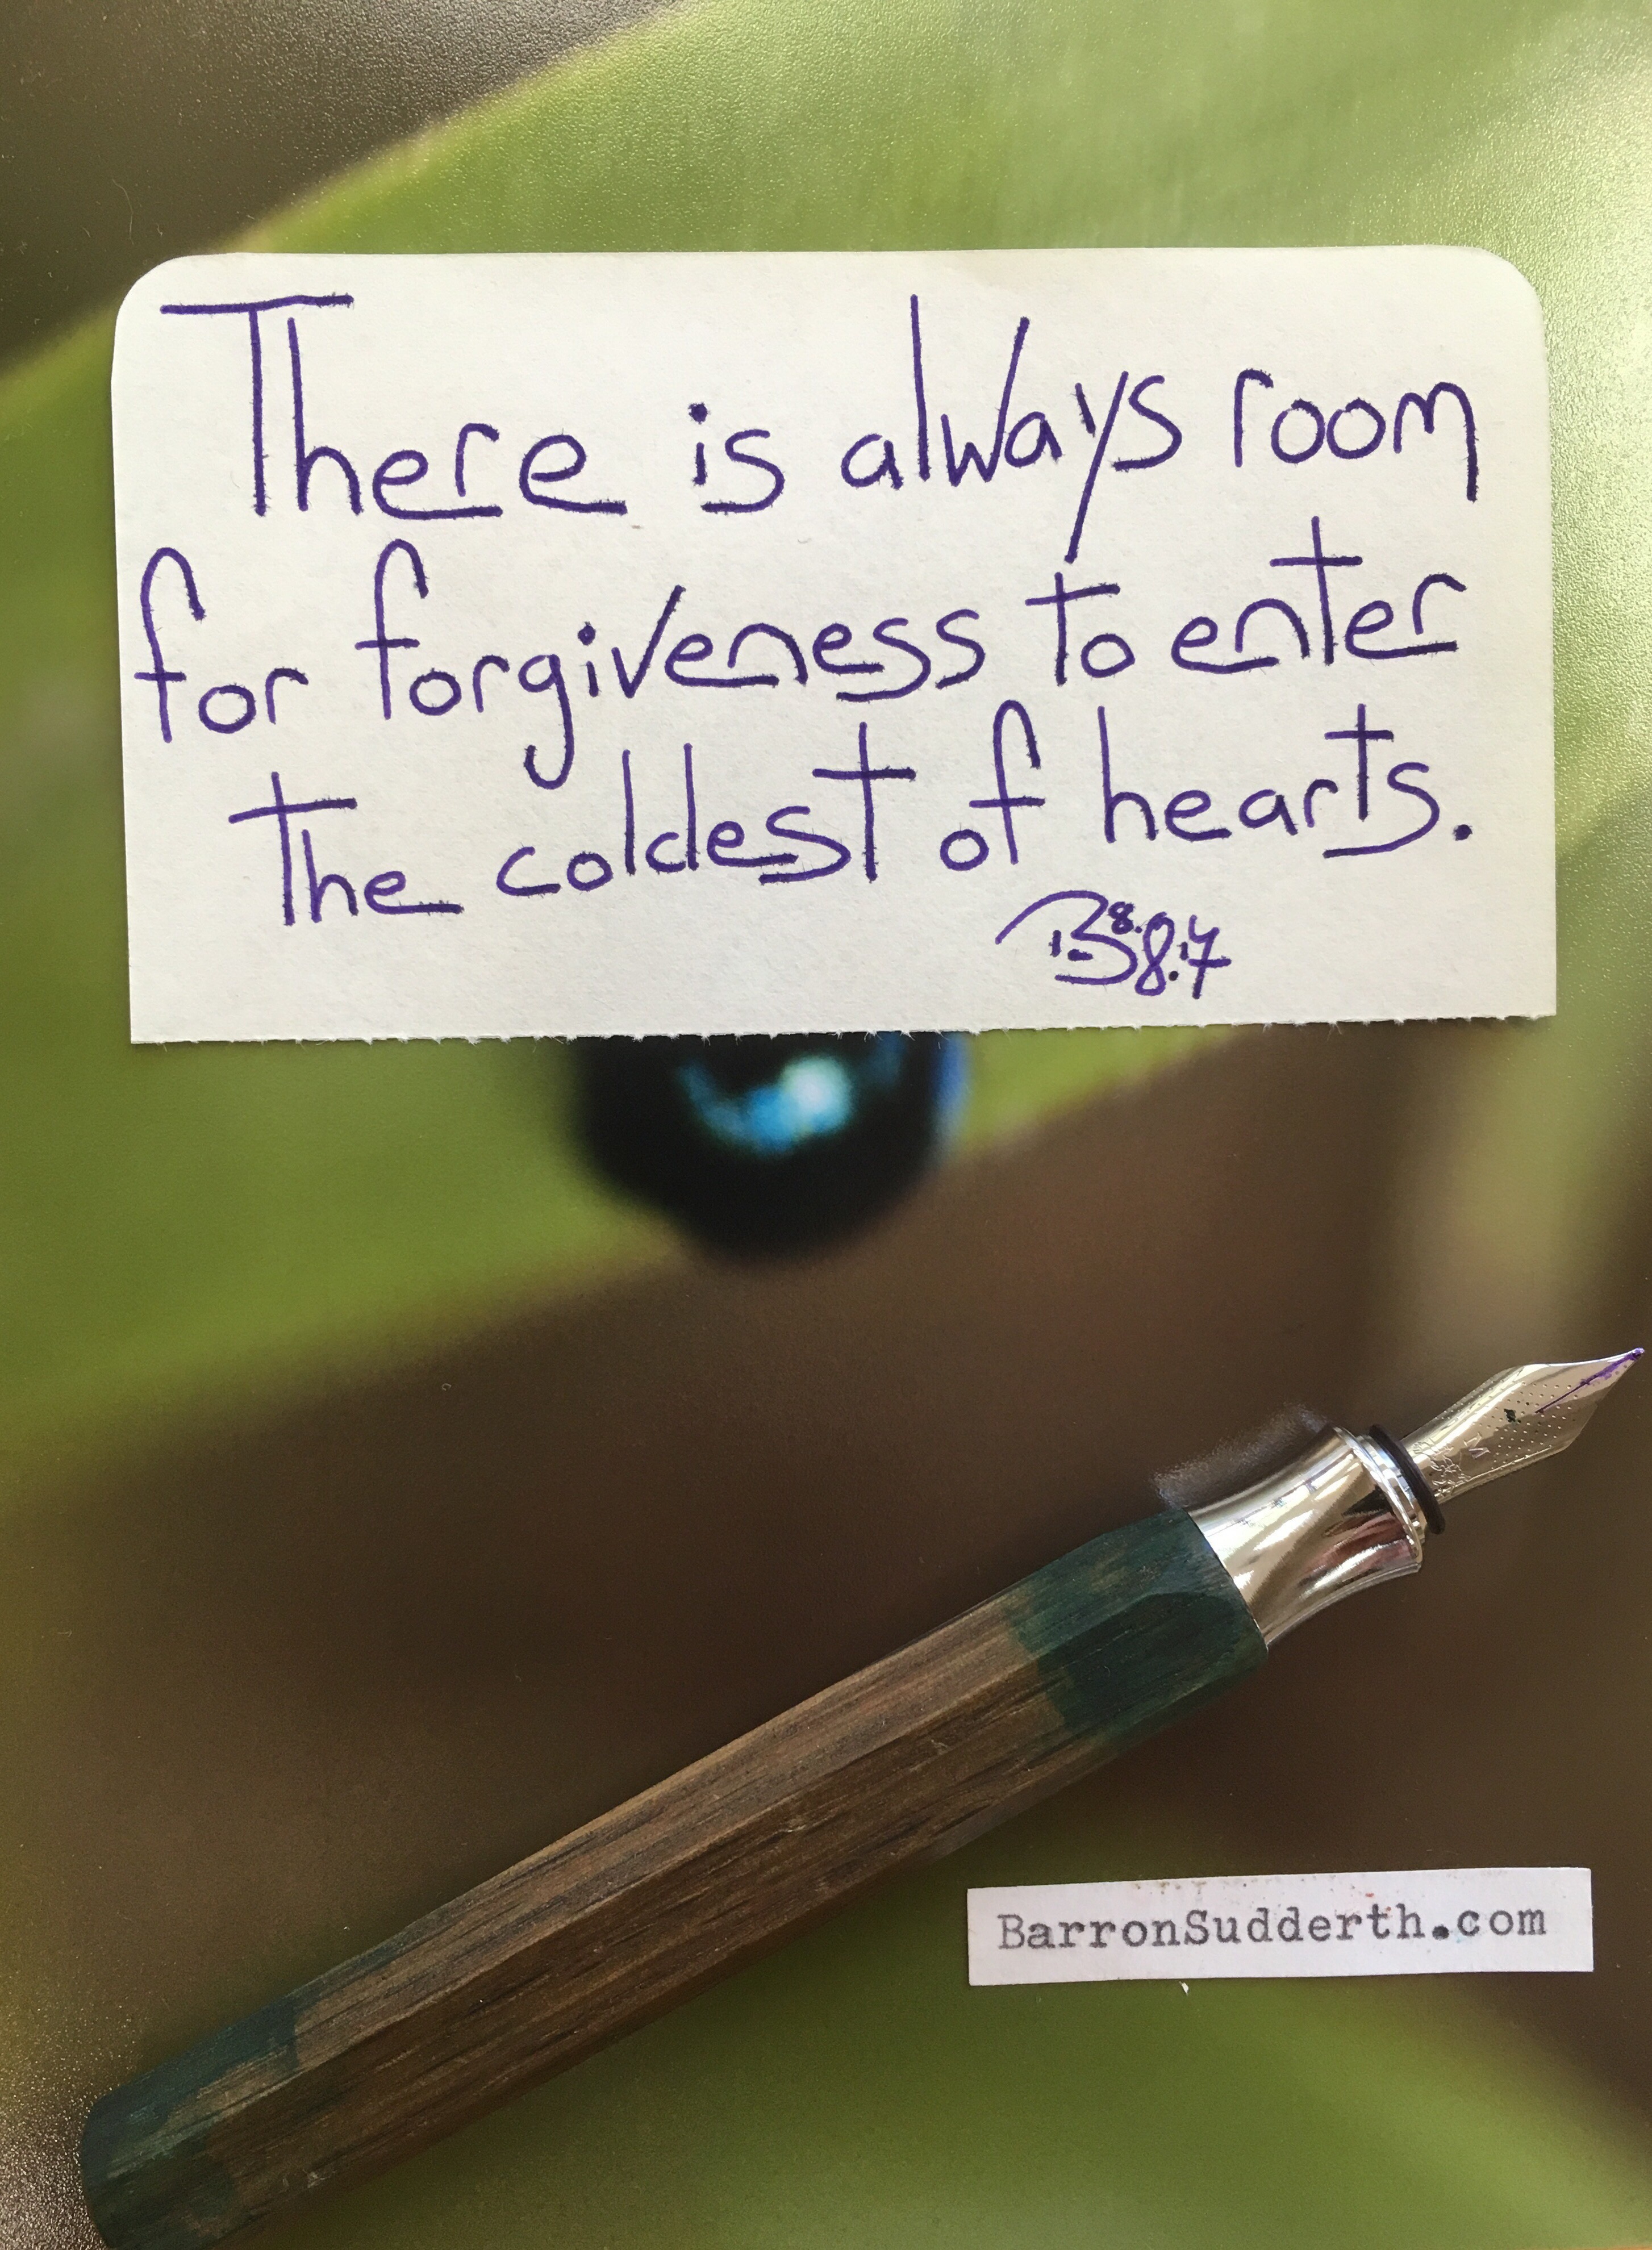 There is always room
for forgiveness to enter
the coldest of hearts.
BarronSudderth.com